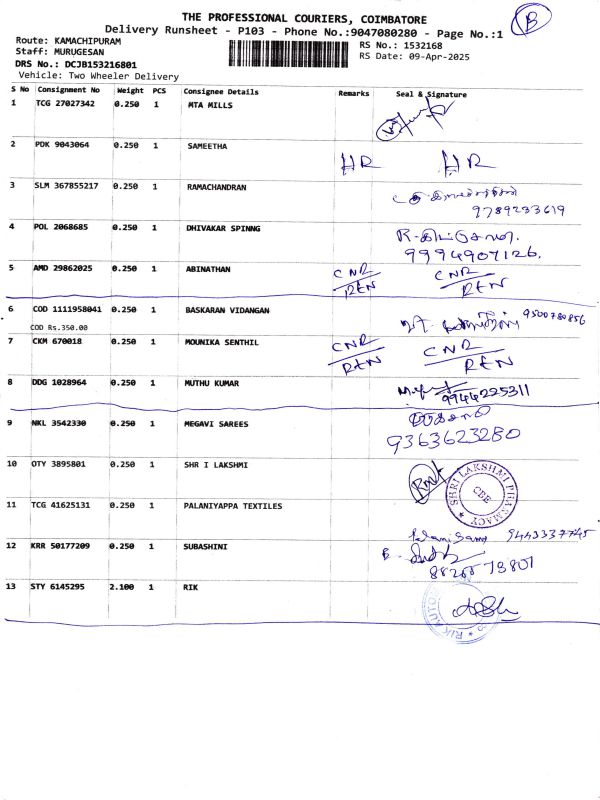 THE PROFESSIONAL COURIERS, COIMBATORE
B
Delivery Runsheet - P103 - Phone No.:9047080280 - Page No.:1
Route: KAMACHIPURAM
RS No.: 1532168
Staff: MURUGESAN
RS Date: 09-Apr-2025
DRS No.: DCJB153216801
Vehicle: Two Wheeler Delivery
S No Consignment No Weight PCS Consignee Details Remarks Seal & Signature
1 TCG 27027342 0.250 1 MTA MILLS
2 PDK 9043064 0.250 1 SAMEETHA
HR HR
3 SLM 367855217 0.250 1 RAMACHANDRAN
9789233619
4 POL 2068685 0.250 1 DHIVAKAR SPINNG
9994907126.
5 AMD 29862025 0.250 1 ABINATHAN
CNR CNR
REN REN
6 COD 1111958041 0.250 1 BASKARAN VIDANGAN
9500780856
COD Rs.350.00
7 CKM 670018 0.250 1 MOUNIKA SENTHIL
CNR CNR
REN REN
8 DDG 1028964 0.250 1 MUTHU KUMAR
9944225311
9 NKL 3542330 0.250 1 MEGAVI SAREES
9363623280
10 OTY 3895801 0.250 1 SHR I LAKSHMI
SHRI LAKSHMI PHARMACY
CBE
11 TCG 41625131 0.250 1 PALANIYAPPA TEXTILES
9443337745
12 KRR 50177209 0.250 1 SUBASHINI
13 STY 6145295 2.100 1 RIK
RIK AUTO